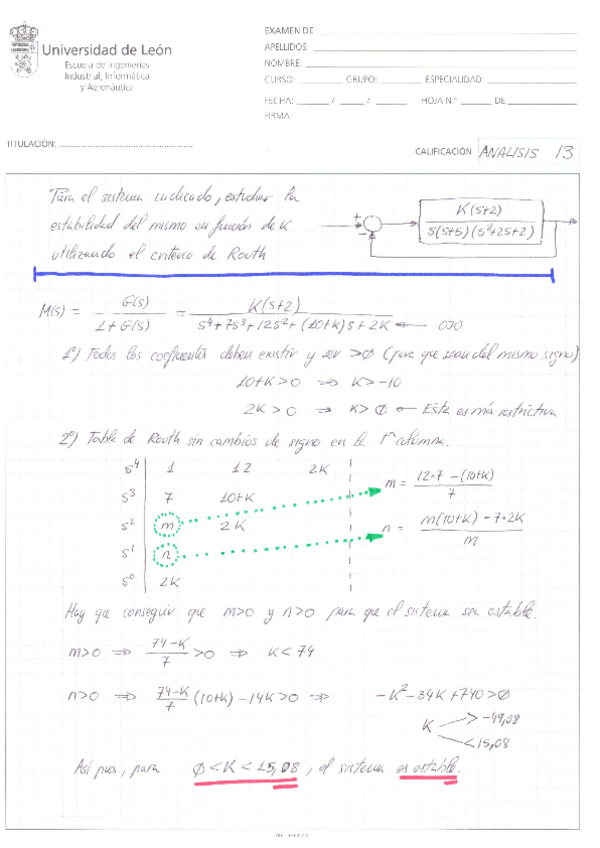 Universidad de León
Escuela de Ingenierías
Industrial, Informática
y Aeronáutica
EXAMEN DE
APELLIDOS:
NOMBRE:
CURSO: GRUPO: ESPECIALIDAD:
FECHA: / / HOJA N.º DE
FIRMA:
TITULACIÓN:
CALIFICACIÓN ANALISIS 13
Para el sistema indicado, estudiar la
estabilidad del mismo en función de K
utilizando el criterio de Routh
+ - K(s+2) / s(s+5)(s²+2s+2)
M(s) = G(s) / 1+G(s) = K(s+2) / s⁴+7s³+12s²+(10+K)s+2K ← OJO
1º) Todos los coeficientes deben existir y ser >0 (para que sean del mismo signo)
10+K>0 ⇒ K>-10
2K>0 ⇒ K>0 ← Esta es más restrictiva
2º) Tabla de Routh sin cambios de signo en la 1ª columna.
s⁴ 1 12 2K
s³ 7 10+K
s² m 2K
s¹ n
s⁰ 2K
m = 12·7-(10+K) / 7
n = m(10+K)-7·2K / m
Hay que conseguir que m>0 y n>0 para que el sistema sea estable.
m>0 ⇒ 74-K / 7 >0 ⇒ K<74
n>0 ⇒ 74-K / 7 (10+K)-14K>0 ⇒ -K²-34K+740>0
K > -49,08
< 15,08
Así pues, para 0<K<15,08, el sistema es estable.